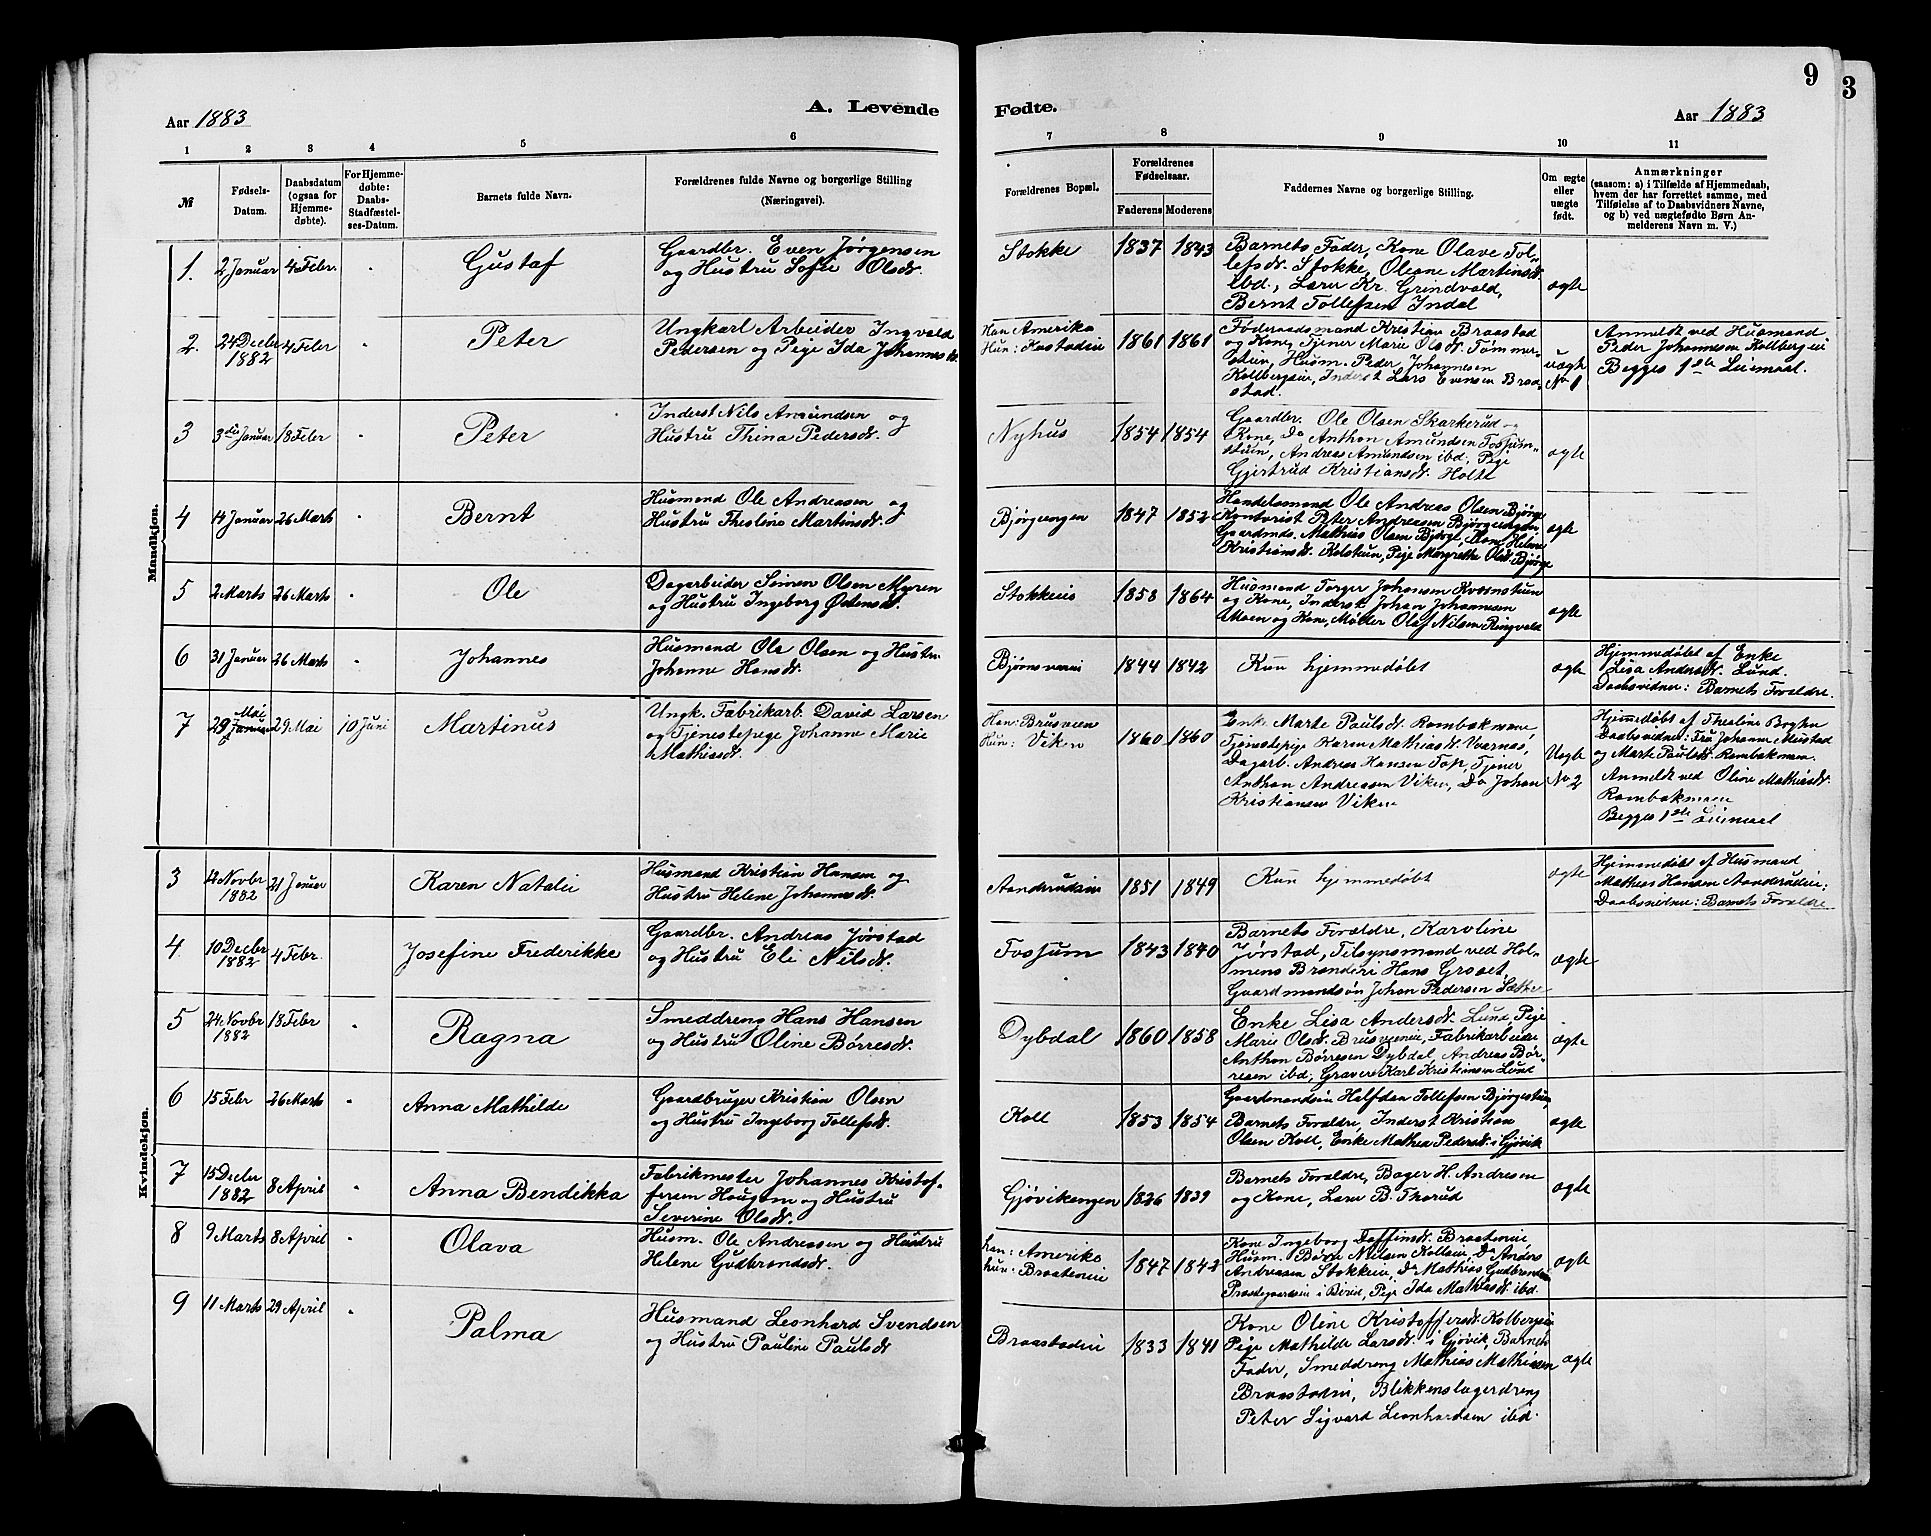 9
3
Aar 1883
A. Levende
Fødte.
Aar 1883
1 2 3 4 5 6 7 8 9 10 11
№
Fødsels-
Datum.
Daabsdatum
(ogsaa for
Hjemme-
døbte).
For Hjemme-
døbte:
Daabs-
Stadfæstel-
ses-Datum.
Barnets fulde Navn.
Forældrenes fulde Navne og borgerlige Stilling
(Næringsvei).
Forældrenes Bopæl.
Forældrenes
Fødselsaar.
Faderens Moderens
Faddernes Navne og borgerlige Stilling.
Om ægte
eller
uægte
født.
Anmærkninger
(saasom: a) i Tilfælde af Hjemmedaab,
hvem der har forrettet samme, med
Tilføielse af to Daabsvidners Navne,
og b) ved uægtefødte Børn An-
melderens Navn m. V.)
Mandkjøn.
1. 2 Januar 4 Febr. Gustaf
Gaardbr. Even Jørgensen
og Hustru Sofie Olsdr.
Stokke 1837 1843
Barnets Fader, Kone Olave Tol-
lefsdr. Stokke, Oleane Martinsdr.
ibd., Lærer Kr. Grindvold,
Bernt Tollefsen Indal
ægte
2. 24 Decbr 1882 4 Febr Peter
Ungkarl Arbeider Ingvald
Pedersen og Pige Ida Johannesdr
Han Amerika
Hun:
1861 1861
Føderaadsmand Kristian Braastad
og Kone, Tjener Marie Olsdr. Tømmer-
stuen, Husm. Peder Johannesen
Kolbergeie, Inderst Lars Evensen Braa-
stad.
uægte
No 1
Anmeldt ved Husmand
Peder Johannesen Kolbergeie
Begges 1ste Leiemaal.
3 3die Januar 18 Febr Peter
Inderst Nils Amundsen og
Hustru Thina Pedersdr.
Nyhus 1854 1854
Gaardbr. Ole Olsen Skarkerud og
Kone, Do Anthon Amundsen Fossum-
stuen, Andreas Amundsen ibd. Pige
Gjertrud Kristiansdr. Holte
ægte
4 14 Januar 26 Marts Bernt
Husmand Ole Andreasen og
Hustru Theoline Martinsdr.
Bjørgeengen 1847 1852
Handelsmand Ole Andreas Olsen Bjørge
Kontorist Peter Andreasen Bjørgeengen
Gaardmds. Mathias Olsen Bjørge, Kone Helene
Kristiansdr. Kolstuen, Pige Margrethe Olsdr. Bjørge
ægte
5 2 Marts 26 Marts Ole
Dagarbeider Simen Olsen Myren
og Hustru Ingeborg Østensdr.
Stokkeeie 1858 1864
Husmand Torger Johansen Kværnstuen
og Kone, Inderst Johan Johannesen
Moen og Kone, Møller Olaf Nilsen Ringvold
ægte
6 31 Januar 26 Marts Johannes
Husmand Ole Olsen og Hustru
Johanne Hansdr.
1844 1842
Kun hjemmedøbt
ægte
Hjemmedøbt af Enke
Lisa Andersdr. Lund.
Daabsvidner: Barnets Forældre.
7 29 Mai Januar 29 Mai 10 Juni Martinus
Ungk. Fabrikarb. David Larsen
og Tjenestepige Johanne Marie
Mathisdr.
Han: Brusveen
Hun: Viken
1860 1860
Enke Marte Paulsdr. Rambækmoen,
Tjenestepige Karen Mathiasdr. Vaarnæs,
Dagarb. Andreas Hansen Top, Tjener
Anthon Andreassen Viken, Do Johan
Kristiansen Viken
Uægte
No 2
Hjemmedøbt af Theoline Boghen
Daabsvidner: Fru Johanne Mustad
og Marte Paulsdr. Rambækmoen.
Anmeldt ved Oline Mathisdr.
Rambækmoen
Begges 1ste Leiemaal
Kvindekjøn.
3 12 Novbr 1882 21 Januar Karen Natalie
Husmand Kristian Hansen og
Hustru Helene Johannesdr.
Aanderudeie 1851 1849
Kun hjemmedøbt
ægte
Hjemmedøbt af Husmand
Mathias Hansen Aanderudeie:
Daabsvidner: Barnets Forældre
4 10 Decbr 1882 4 Febr. Josefine Frederikke
Gaardbr. Andreas Jørstad
og Hustru Eli Nilsdr.
Fossum 1843 1840
Barnets Forældre, Karoline
Jørstad, Tilsynsmand ved Hol-
mens Brænderi Hans Graaet,
Gaardmandssøn Johan Pedersen Sætre
ægte
5 24 Novbr 1882 18 Febr Ragna
Smeddreng Hans Hansen
og Hustru Oline Børresdr.
Dybdal 1860 1858
Enke Lisa Andersdr. Lund, Pige
Marie Olsdr. Brusveeneie, Fabrikarbeider
Anthon Børresen Dybdal, Andreas Bør-
resen ibd, Graver Karl Kristiansen Lund
ægte
6 15 Febr 26 Marts Anna Mathilde
Gaardbruger Kristian Olsen
og Hustru Ingeborg Tollefsdr.
Koll 1853 1854
Gaardmandssøn Halfdan Tollefsen Bjørgestuen,
Barnets Forældre, Inderst Kristian
Olsen Koll, Enke Mathea Pedersdr. i Gjøvik
ægte
7 15 Decbr 1882 8 April Anna Bendikka
Fabrikmester Johannes Kristof-
fersen Haugom og Hustru
Severine Olsdr.
Gjøvikengen 1836 1839
Barnets Forældre, Bager H. Andresen
og Kone, Lærer B. Thorud
ægte
8 9 Marts 8 April Olava
Husm. Ole Andreassen og Hustru
Helene Gudbrandsdr.
han: Amerika
hun: Braateneie
1847 1842
Kone Ingeborg Daffinsdr. Braateneie
Husm. Børre Nielsen Kolleie, Do Anders
Andreasen Stokkeeie, Do Mathias Gudbrandsen
Præstegaardseie i Biri, Pige Ida Mathiasdr. ibd.
ægte
9 11 Marts 29 April Palma
Husmand Leonhard Svendsen
og Hustru Pauline Paulsdr
Braastadeie 1833 1841
Kone Oline Kristoffersdr. Kolbergeie
Pige Mathilde Larsdr. i Gjøvik, Barnets
Fader, Smeddreng Mathias Mathiesen
Braastadeie, Blikkenslagerdreng
Peter Sigvard Leonhardsen ibd.
ægte